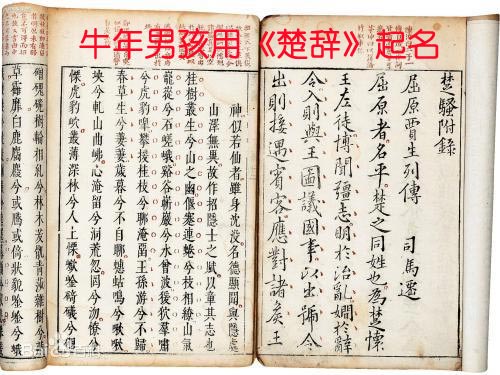 牛年男孩用《楚辞》起名
楚騷附錄
屈原賈生列傳　司馬遷
屈原者名平楚之同姓也為楚懷
王左徒博聞彊志明於治亂嫺於辭
令入則與王圖議國事以出號令
出則接遇賓客應對諸矦王
神似若仙者雖身沈沒名德顯聞與隱處
山澤無異故作招隱士之賦以章其志也
桂樹叢生兮山之幽偃蹇連蜷兮枝相繚山氣
巃嵸兮石嵯峨谿谷嶄巖兮水曾波猨狖羣嘯
兮虎豹嘷攀援桂枝兮聊淹畱王孫游兮不歸
春草生兮萋萋歲暮兮不自聊蟪蛄鳴兮啾啾
坱兮軋山曲岪心淹留兮洞荒忽罔兮沕憭兮
慄虎豹岤叢薄深林兮人上慄嶔崟碕礒兮碅
磳磈硊樹輪相糾兮林木茷骫青莎雜樹兮薠
草靃靡白鹿麏麚兮或騰或倚狀貌崟崟兮峨